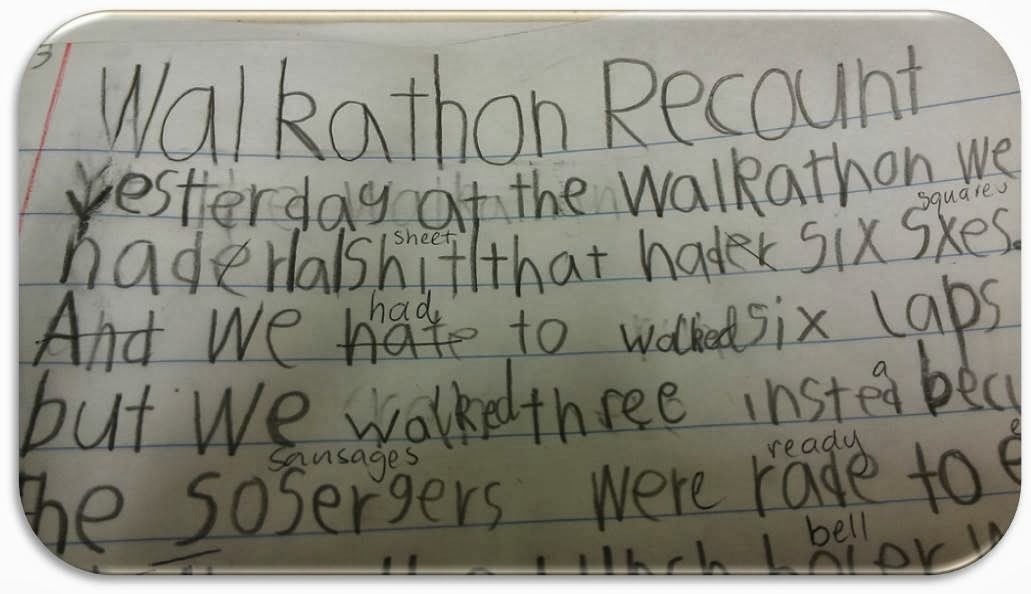 3
Walkathon Recount
yesterday at the walkathon we
squares
sheet
hader that hader six sxes.
had
And we hate to walked six laps
a
but we walked three insted
sausages ready
the sosergers were rade to
bell